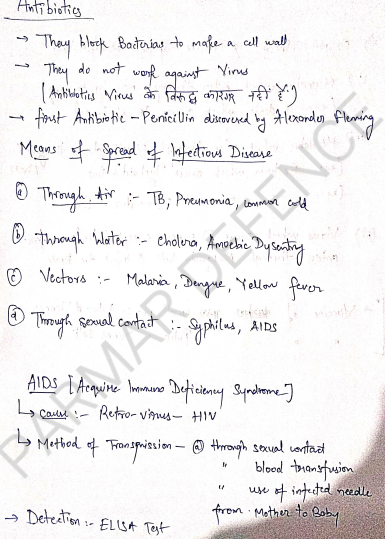 Antibiotics
→ They block Bacterias to make a cell wall
→ They do not work against Virus
(Antibiotics Virus के विरुद्ध कारगर नहीं है)
→ first Antibiotic - Penicillin discovered by Alexander Fleming
Means of Spread of Infectious Disease
(a) Through Air :- TB, Pneumonia, common cold
(b) Through Water :- Cholera, Amoebic Dysentry
(c) Vectors :- Malaria, Dengue, Yellow fever
(d) Through sexual contact :- Syphilus, AIDS
AIDS [Acquire Immuno Deficiency Syndrome]
↳ cause :- Retro-virus - HIV
↳ Method of Transmission - (a) through sexual contact
" blood transfusion
" use of infected needle
from Mother to Baby
→ Detection :- ELISA Test
PARMAR DEFENCE